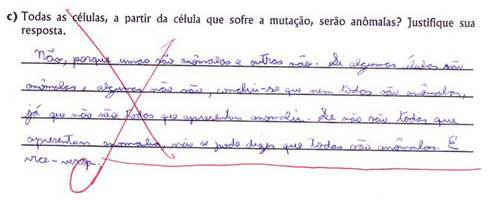 c) Todas as células, a partir da célula que sofre a mutação, serão anômalas? Justifique sua
resposta.
Não, porque umas são anômalas e outras não. Se algumas células são
anômalas e algumas não são, conclui-se que nem todas são anômalas,
já que não são todas que apresentam anomalia. Se não são todas que
apresentam anomalia não se pode dizer que todas são anômalas. E
vice-versa.